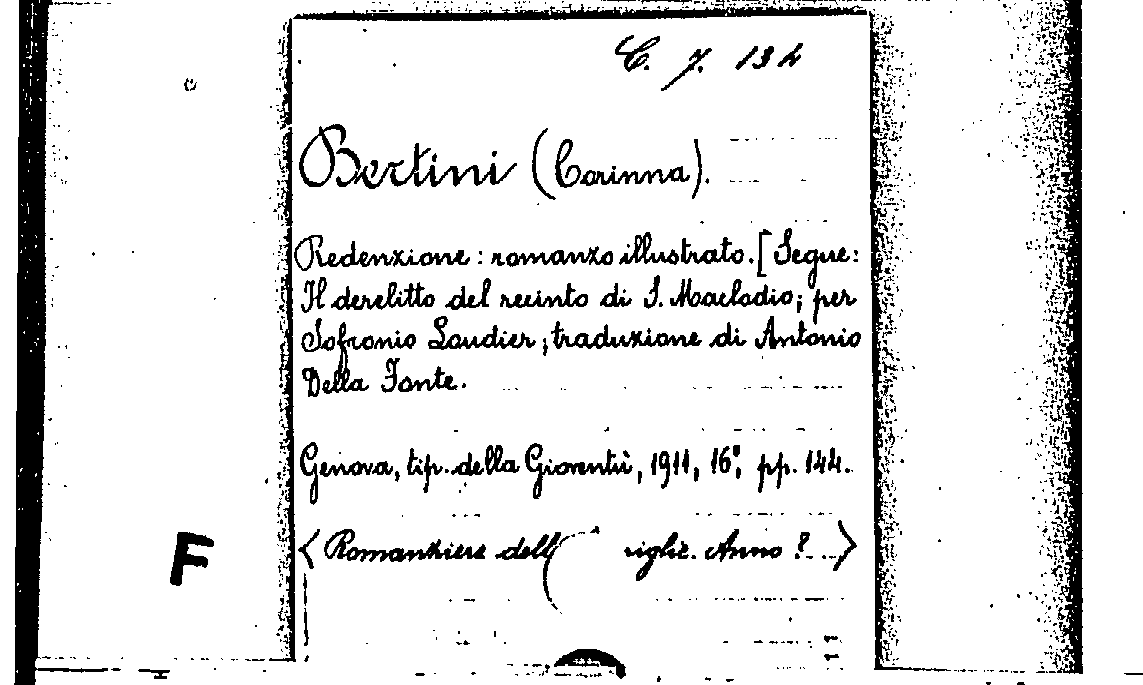 C. 7. 134
Bertini (Corinna).
Redenzione : romanzo illustrato. [Segue:
Il derelitto del recinto di S. Macladio; per
Sofronio Loudier; traduzione di Antonio
Della Fonte.
Genova, tip. della Gioventù, 1911, 16°, pp. 144.
<Romanziere dell iglie. Anno ?. >
F